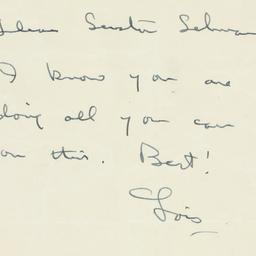 Dear Senator
I know you are
doing all you can
on this. Best!
Lois